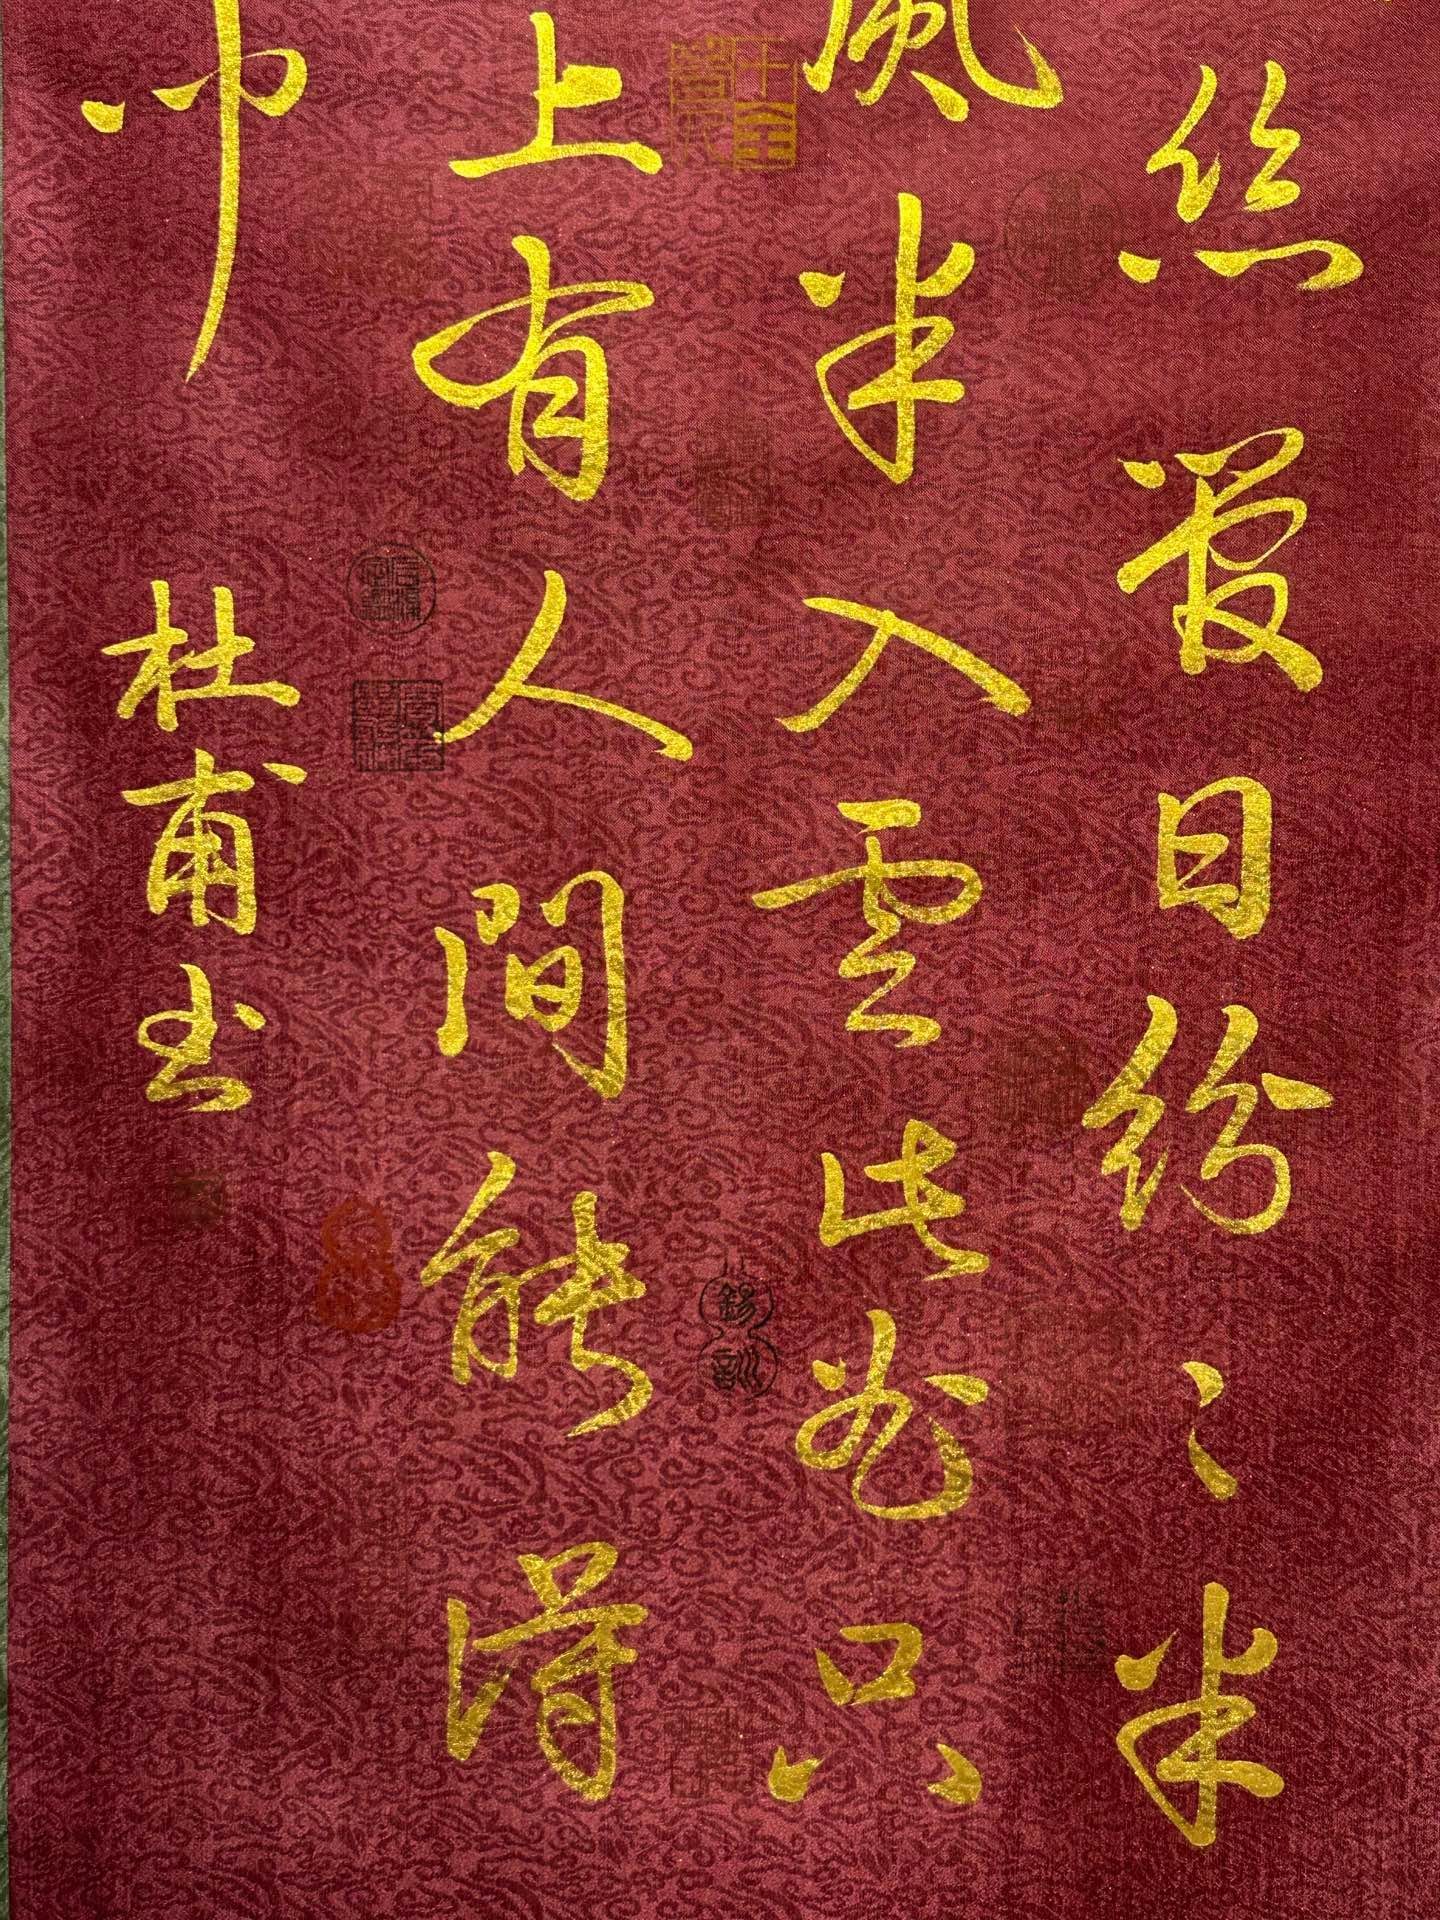 絲管日紛〻半
風半入雲此曲只
上有人間能得
聞
杜甫書
錫訓